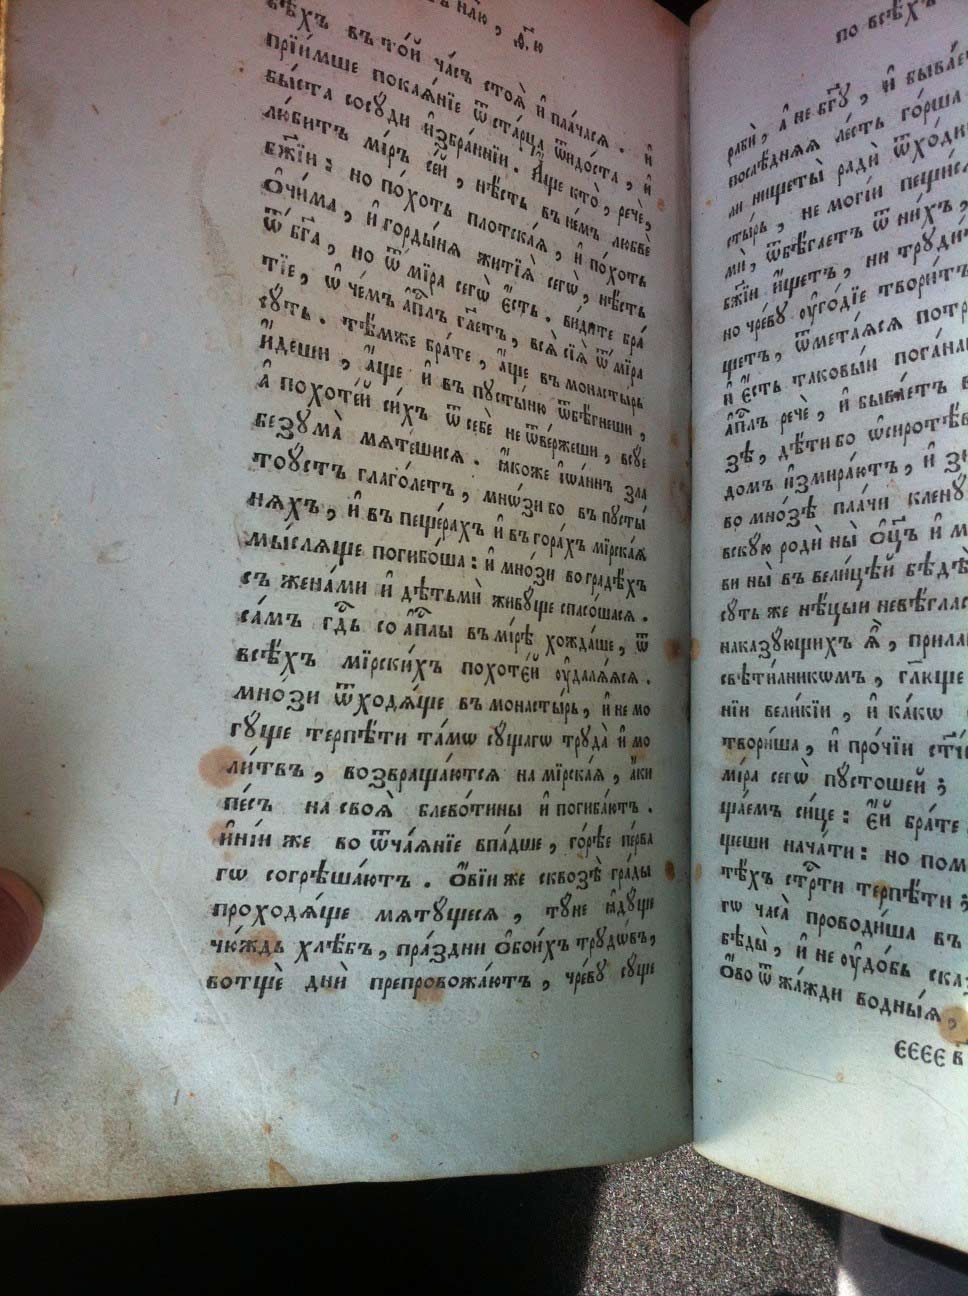 нлю, ѳ҃.ю
всѣ́хъ въ то́й ча́съ стоѧ̀ и҆ пла́часѧ. и҆
прїи́мше покаѧ́нїе ѿ ста́рца ѿидо́ста, и҆
бы́ста сосу́ди и҆збра́ннїи. А҆́ще кто̀, речѐ,
лю́битъ мі́ръ се́й, нѣ́сть въ не́мъ любвѐ
бж҃їи: но по́хоть плотска́ѧ, и҆ по́хоть
ѻ҆чи́ма, и҆ горды́нѧ житїѧ̀ сегѡ̀, нѣ́сть
ѿ бг҃а, но ѿ мі́ра сегѡ̀ є҆́сть. ви́дите бра́
тїе, ѡ҆ че́мъ а҆пⷭ҇лъ гл҃етъ, всѧ̀ сїѧ̀ ѿ мі́ра
су́ть. тѣ́мже бра́те, а҆́ще въ монасты́рь
и҆́деши, а҆́ще и҆ въ пусты́ню ѿбѣ́гнеши,
а҆ похоте́й си́хъ ѿ себѐ не ѿве́ржеши, всу́е
безума̀ мѧте́шисѧ. ꙗ҆́коже і҆ѡа́ннъ зла
тоу́стъ глаго́летъ, мно́зи бо въ пусты́
нѧхъ, и҆ въ пеще́рахъ и҆ въ гора́хъ мїрска́ѧ
мы́слѧще погибо́ша: и҆ мно́зи во градѣ́хъ
съ жена́ми и҆ дѣтьмѝ живу́ще спасо́шасѧ.
са́мъ гдⷭ҇ь со а҆пⷭ҇лы въ мі́рѣ хожда́ше, ѿ
всѣ́хъ мїрски́хъ похоте́й ᲂу҆далѧ́ѧсѧ.
мно́зи ѿходѧ́ще въ монасты́рь, и҆ не мо
гу́ще терпѣ́ти та́мѡ су́щагѡ труда̀ и҆ мо
ли́твъ, возвраща́ютсѧ на мїрска́ѧ, а҆́ки
пе́съ на своѧ̀ блево́тины и҆ погиба́ютъ.
и҆ні́и же во ѿча́ѧнїе впа́дше, го́рѣе пе́рва
гѡ согрѣша́ютъ. Ѻ҆ві́и же сквозѣ̀ гра́ды
проходѧ́ще мѧту́щесѧ, ту́не ꙗ҆ду́ще
чю́ждь хлѣ́бъ, пра́здни ѻ҆бои́хъ трудѡ́въ,
вотщѐ днѝ препровожа́ютъ, чре́ву су́ще
по всѣ́хъ
рабѝ, а҆ не бг҃у, и҆ быва́е
послѣ́днѧѧ ле́сть го́рша
ли нищеты̀ ради̑ ѿходи
сты́рь, не могі́и пещи́сѧ
мѝ, ѿбѣ́гаетъ ѿ ни́хъ,
бж҃їи и҆́щетъ, ни труди́т
но чре́ву ᲂу҆го́дїе твори́тъ
щетъ, ѿмета́ѧсѧ потр
и҆ є҆́сть таковы́и пога́на
а҆пⷭ҇лъ речѐ, и҆ быва́етъ в
зѣ, дѣ́ти бо ѡ҆сиротѣ́в
до́мъ и҆змира́ютъ, и҆ зи
во мно́зѣ пла́чи клену́
вску́ю родѝ ны̀ ѻ҆ц҃ъ и҆ м
ви ны̀ въ вели́цѣй бѣдѣ̀
су́ть же нѣ́цыи невѣ́глас
наказу́ющихъ ѧ҆̀, прила
свѣти́лникѡмъ, гл҃юще
нїи вели́кїи, и҆ ка́кѡ
твори́ша, и҆ про́чїи ст҃і́
мі́ра сегѡ̀ пустошей;
ща́емъ си́це: є҆́й бра́те
щеши нача́ти: но пом
тѣ́хъ стрⷭ҇ти терпѣ́ти;
гѡ часа̀ проводи́ша въ
бѣды̀, и҆ не ᲂу҆до́бь сказ
Ѻ҆́во ѿ жа́жди водны́ѧ,
ЄЄЄЄ в